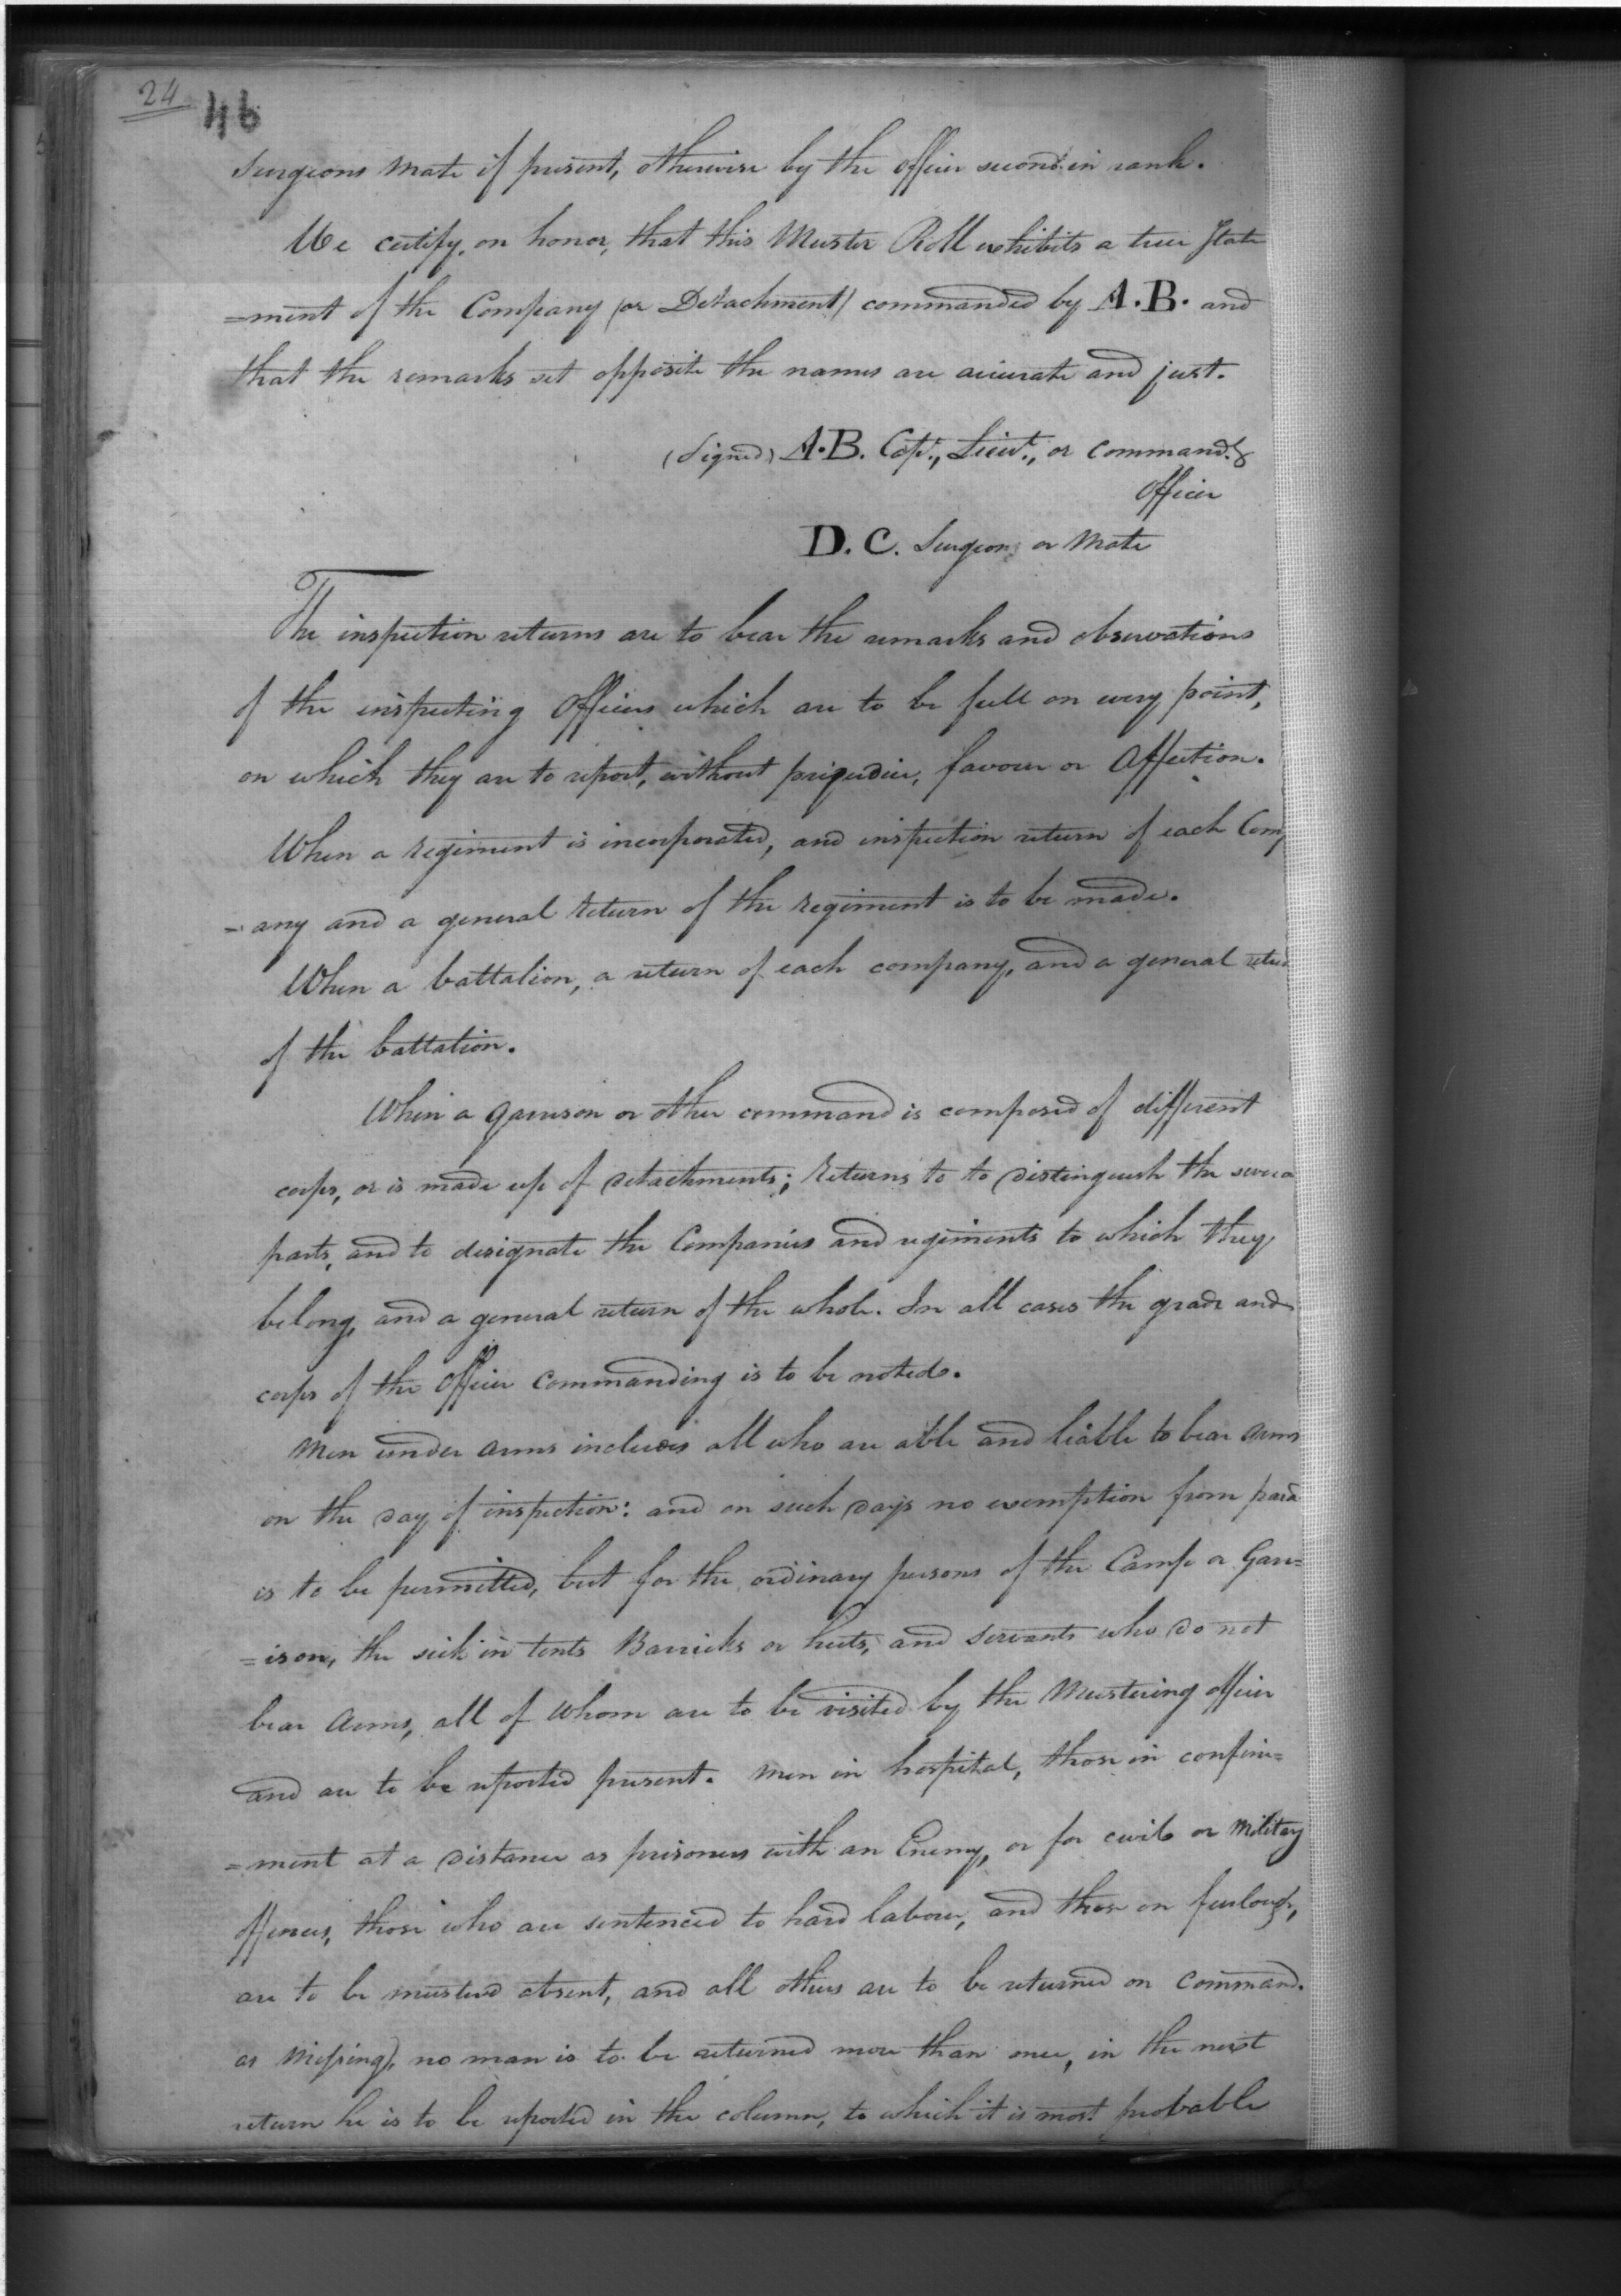 24 46
Surgeons Mate if present, otherwise by the officer second in rank.
We certify, on honor, that this Muster Roll exhibits a true State
=ment of the Company (or Detachment) commanded by A.B. and
that the remarks set opposite the names are accurate and just.
(Signed) A.B. Capt., Lieut., or Command.g
Officer
D.C. Surgeon or Mate
The inspection returns are to bear the remarks and observations
of the inspecting Officers which are to be full on every point,
on which they are to report, without prejudice, favour or Affection.
When a regiment is incorporated, and inspection return of each Comp
=any and a general Return of the Regiment is to be made.
When a battalion, a return of each company, and a general
of the battalion.
When a garrison or other command is composed of different
corps, or is made up of detachments; Returns to to distinguish the
parts, and to designate the Companies and regiments to which they
belong, and a general return of the whole. In all cases the grade and
corps of the Officer Commanding is to be noted.
Men under arms includes all who are able and liable to bear arms
on the day of inspection: and on such days no exemption from
is to be permitted, but for the ordinary persons of the Camp or Garr=
=ison, the sick in tents Barricks or huts, and Servants who do not
bear Arms, all of Whom are to be visited by the Mustering officer
and are to be reported present. Men in hospital, those in confine=
=ment at a distance as prisoners with an Enemy, or for civil or Military
offences, those who are sentenced to hard labour, and those on furlough,
are to be mustered absent, and all others are to be returned on Command.
or Missing), no man is to be returned more than once, in the next
return he is to be reported in the column, to which it is most probable